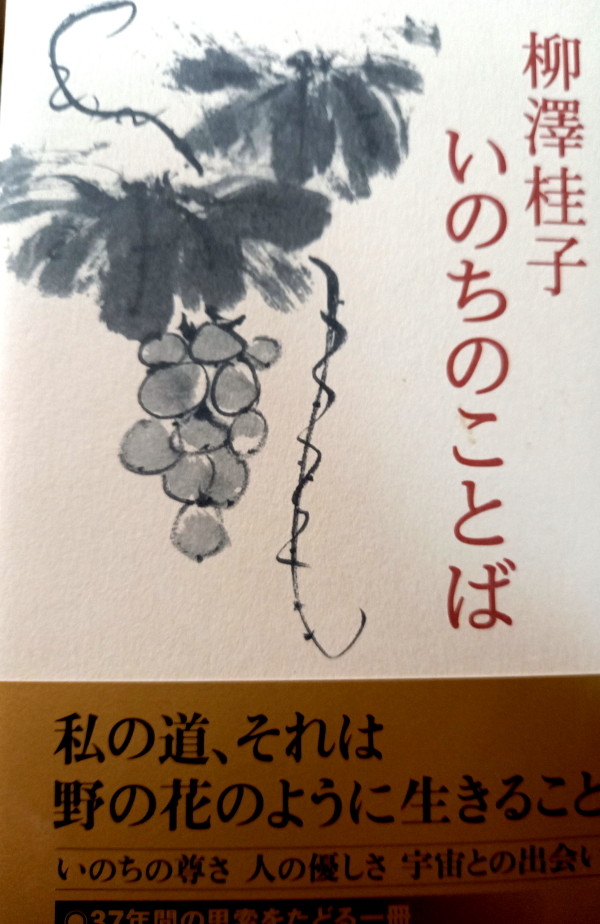 柳澤桂子
いのちのことば
私の道、それは
野の花のように生きること
いのちの尊さ 人の優しさ 宇宙との出会い
◎37年間の思索をたどる一冊